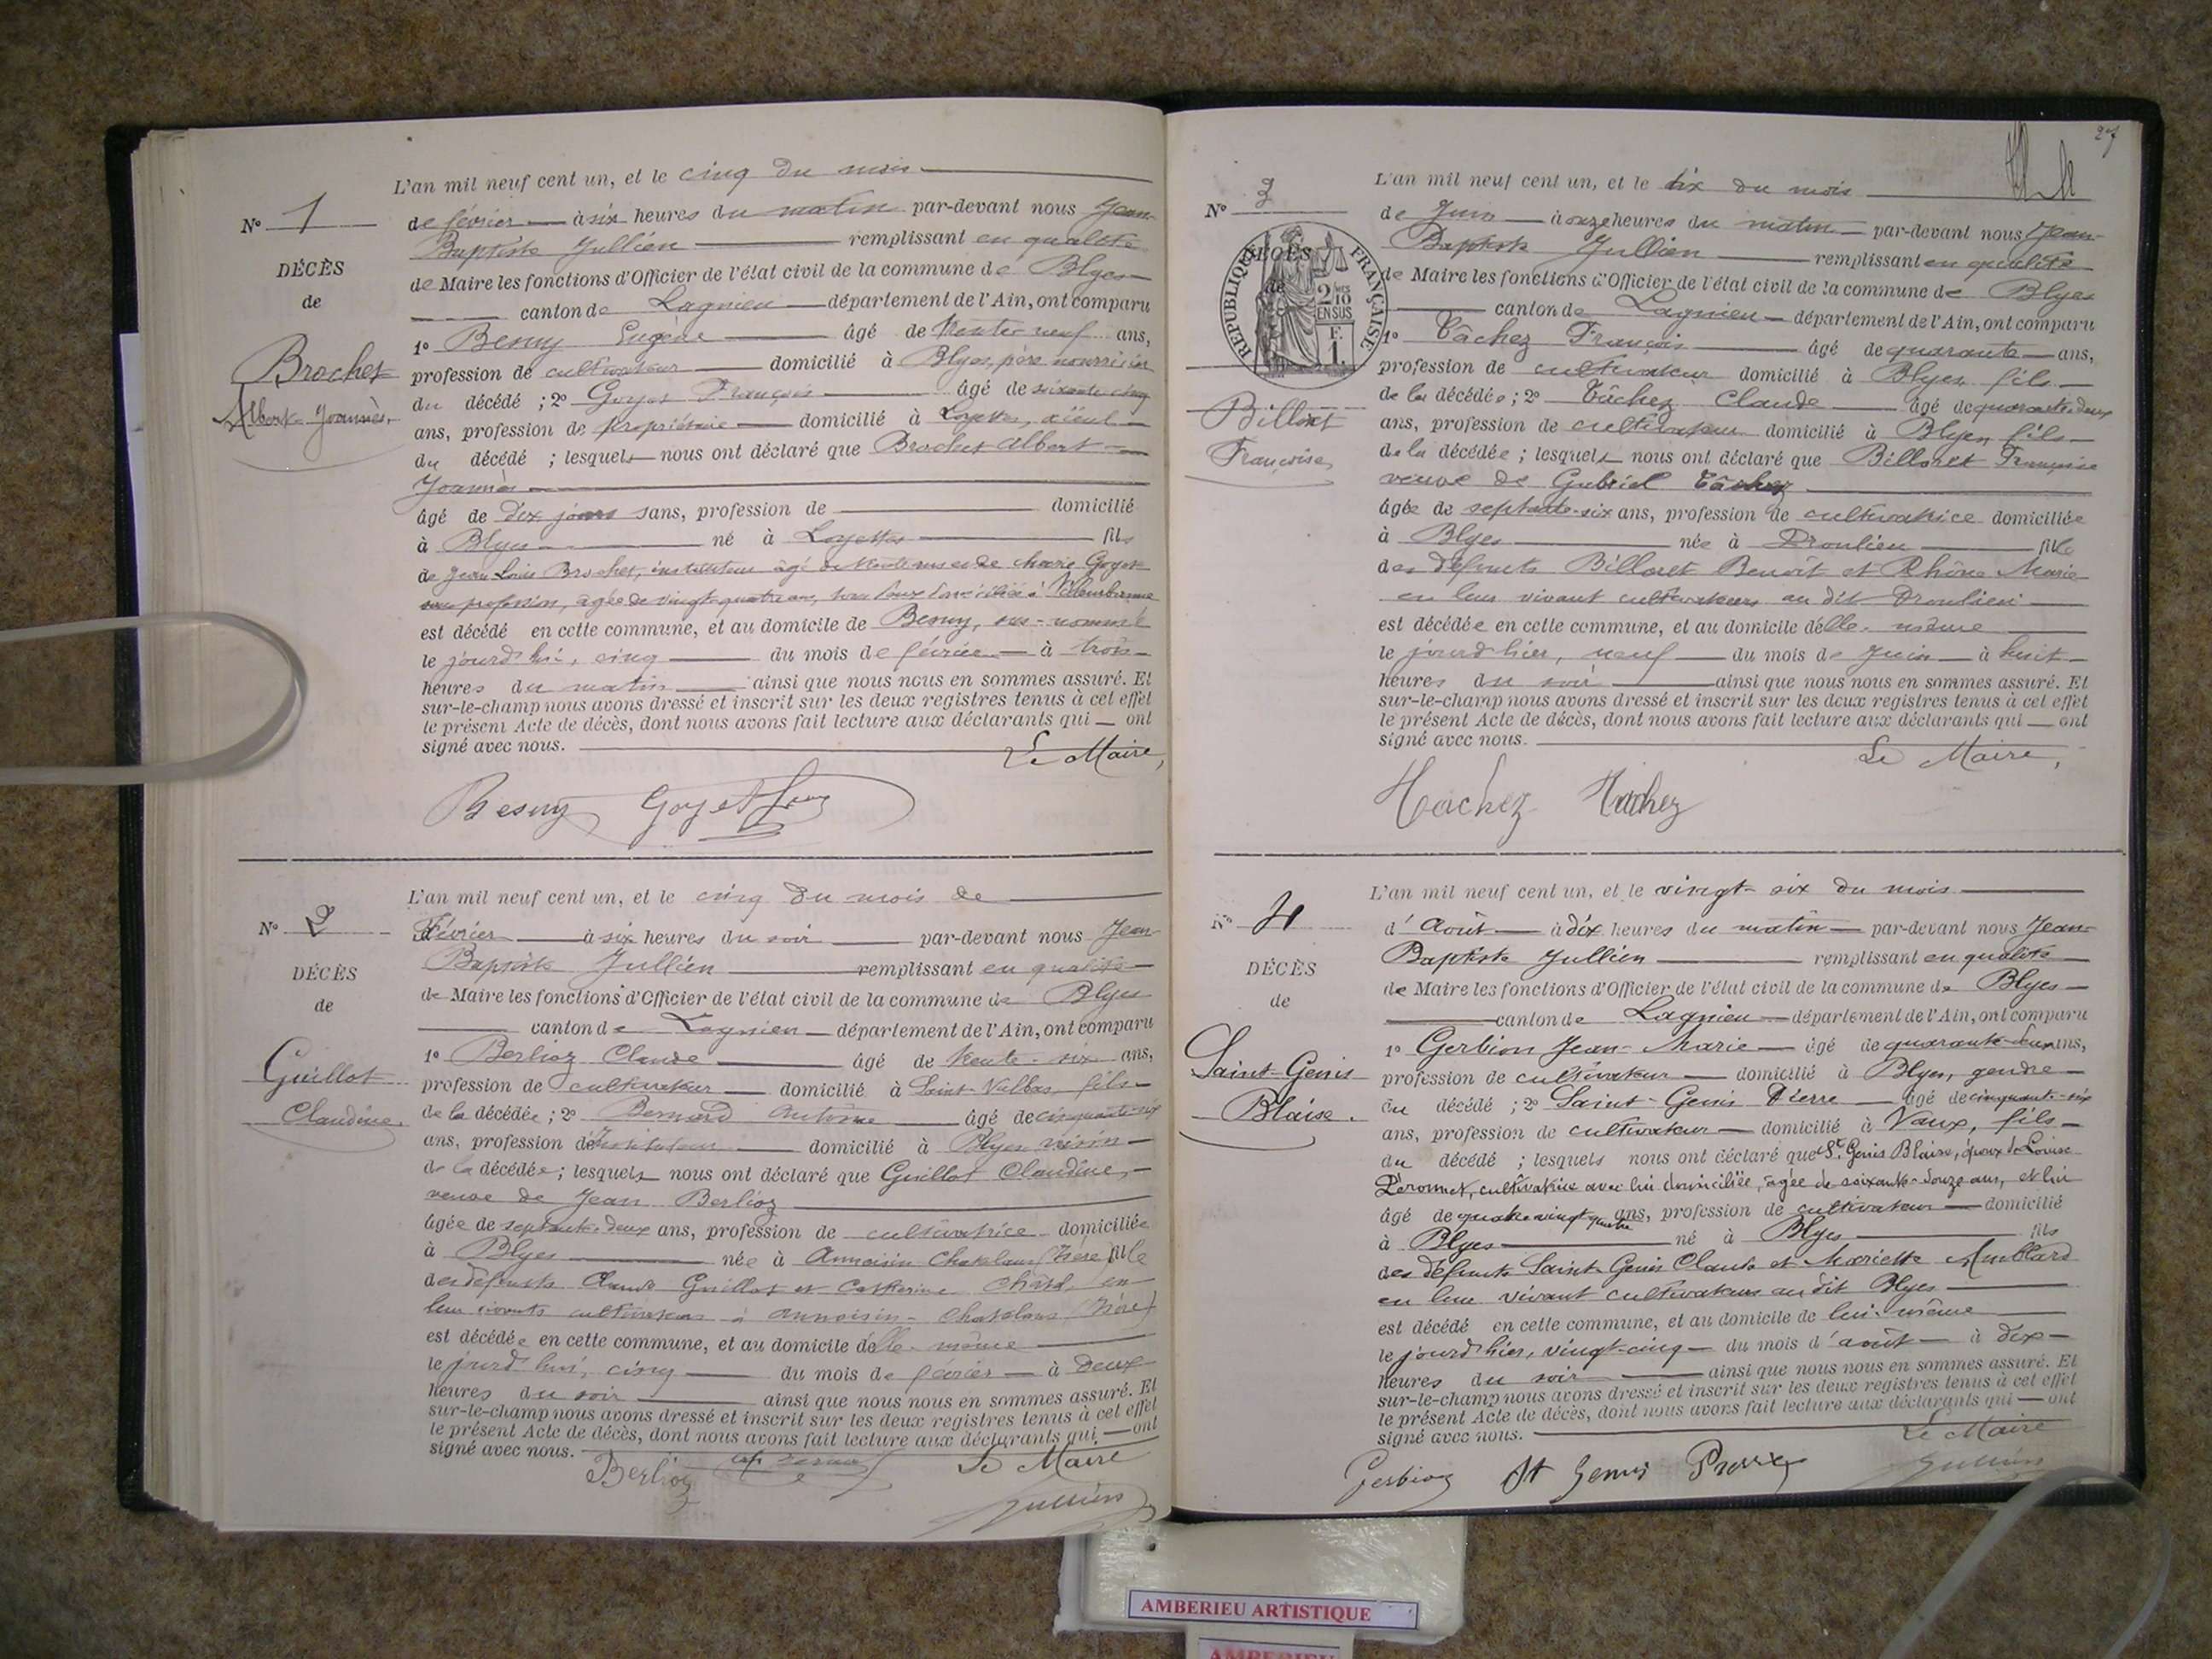 L'an mil neuf cent un, et le cinq du mois
Nº 1
de février à six heures du matin par-devant nous Jean-
Baptiste Jullien remplissant en qualité
DÉCÈS
de Maire les fonctions d'Officier de l'état civil de la commune de Blyes
de
canton de Lagnieu département de l'Ain, ont comparu
1º Besuy Eugène âgé de trente-neuf ans,
Brochet
profession de cultivateur domicilié à Blyes, père nourricier
Albert Joannès
du décédé ; 2º Goyet François âgé de soixante cinq
ans, profession de propriétaire domicilié à Loyettes, aïeul
du décédé ; lesquels nous ont déclaré que Brochet Albert
Joannès
âgé de dix jours sans, profession de domicilié
à Blyes né à Loyettes fils
de Jean Louis Brochet, instituteur âgé de trente et de Marie Goyet
sans profession, âgée de vingt-quatre ans, tous deux domiciliés à Villeurbanne
est décédé en cette commune, et au domicile de Besuy, sus-nommé
le jourd'hui, cinq du mois de février à trois
heures du matin ainsi que nous nous en sommes assuré. Et
sur-le-champ nous avons dressé et inscrit sur les deux registres tenus à cet effet
le présent Acte de décès, dont nous avons fait lecture aux déclarants qui ont
signé avec nous. Le Maire,
Besuy Goyet
L'an mil neuf cent un, et le cinq du mois de
Nº 2
Février à six heures du soir par-devant nous Jean
Baptiste Jullien remplissant en qualité
DÉCÈS
de Maire les fonctions d'Officier de l'état civil de la commune de Blyes
de
canton de Lagnieu département de l'Ain, ont comparu
1º Berlioz Claude âgé de trente-six ans,
Guillot
profession de cultivateur domicilié à Saint-Vulbas, fils
Claudine.
de la décédée ; 2º Bernard Antoine âgé de cinquante-six
ans, profession d'instituteur domicilié à Blyes, voisin
de la décédée ; lesquels nous ont déclaré que Guillot Claudine,
veuve de Jean Berlioz
âgée de septante-deux ans, profession de cultivatrice domiciliée
à Blyes née à Annoisin Chatelans (Isère) fille
des défunts Claude Guillot et Catherine en
leur vivants cultivateurs à Annoisin-Chatelans (Isère)
est décédée en cette commune, et au domicile d'elle-même
le jourd'hui, cinq du mois de février à deux
heures du soir ainsi que nous nous en sommes assuré. Et
sur-le-champ nous avons dressé et inscrit sur les deux registres tenus à cet effet
le présent Acte de décès, dont nous avons fait lecture aux déclarants qui ont
signé avec nous.
Berlioz Le Maire
Jullien
27
L'an mil neuf cent un, et le dix du mois
Nº 3
de Juin à onze heures du matin par-devant nous Jean-
Baptiste Jullien remplissant en qualité
DÉCÈS
de
RÉPUBLIQUE FRANÇAISE
2/10 EN SUS
F. 1.
de Maire les fonctions d'Officier de l'état civil de la commune de Blyes
canton de Lagnieu département de l'Ain, ont comparu
1º Tâchez François âgé de quarante ans,
profession de cultivateur domicilié à Blyes, fils
Billoret
de la décédée ; 2º Tâchez Claude âgé de quarante-deux
ans, profession de cultivateur domicilié à Blyes, fils
Françoise
de la décédée ; lesquels nous ont déclaré que Billoret Françoise
veuve de Gabriel Tâchez
âgée de septante-six ans, profession de cultivatrice domiciliée
à Blyes née à Proulieu fille
des défunts Billoret Benoît et Rhône Marie
en leur vivant cultivateurs au dit Proulieu
est décédée en cette commune, et au domicile d'elle-même
le jourd'hier, neuf du mois de Juin à huit
heures du soir ainsi que nous nous en sommes assuré. Et
sur-le-champ nous avons dressé et inscrit sur les deux registres tenus à cet effet
le présent Acte de décès, dont nous avons fait lecture aux déclarants qui ont
signé avec nous. Le Maire,
Tachez Tachez
L'an mil neuf cent un, et le vingt-six du mois
Nº 4
d'Août à dix heures du matin par-devant nous Jean-
Baptiste Jullien remplissant en qualité
DÉCÈS
de Maire les fonctions d'Officier de l'état civil de la commune de Blyes
de
canton de Lagnieu département de l'Ain, ont comparu
1º Gerbion Jean-Marie âgé de quarante-deux ans,
Saint-Genis
profession de cultivateur domicilié à Blyes, gendre
Blaise.
du décédé ; 2º Saint-Genis Pierre âgé de cinquante-six
ans, profession de cultivateur domicilié à Vaux, fils
du décédé ; lesquels nous ont déclaré que St Genis Blaise, époux de Louise
Peronnet, cultivatrice avec lui domiciliée, âgée de soixante-douze ans, et lui
âgé de quatre vingt quatre ans, profession de cultivateur domicilié
à Blyes né à Blyes fils
des défunts Saint-Genis Claude et Mariette
en leur vivant cultivateurs au dit Blyes
est décédé en cette commune, et au domicile de lui-même
le jourd'hier, vingt-cinq du mois d'août à dix
heures du soir ainsi que nous nous en sommes assuré. Et
sur-le-champ nous avons dressé et inscrit sur les deux registres tenus à cet effet
le présent Acte de décès, dont nous avons fait lecture aux déclarants qui ont
signé avec nous. Le Maire
Gerbion St Genis Pierre Jullien
AMBERIEU ARTISTIQUE
AMBERIEU